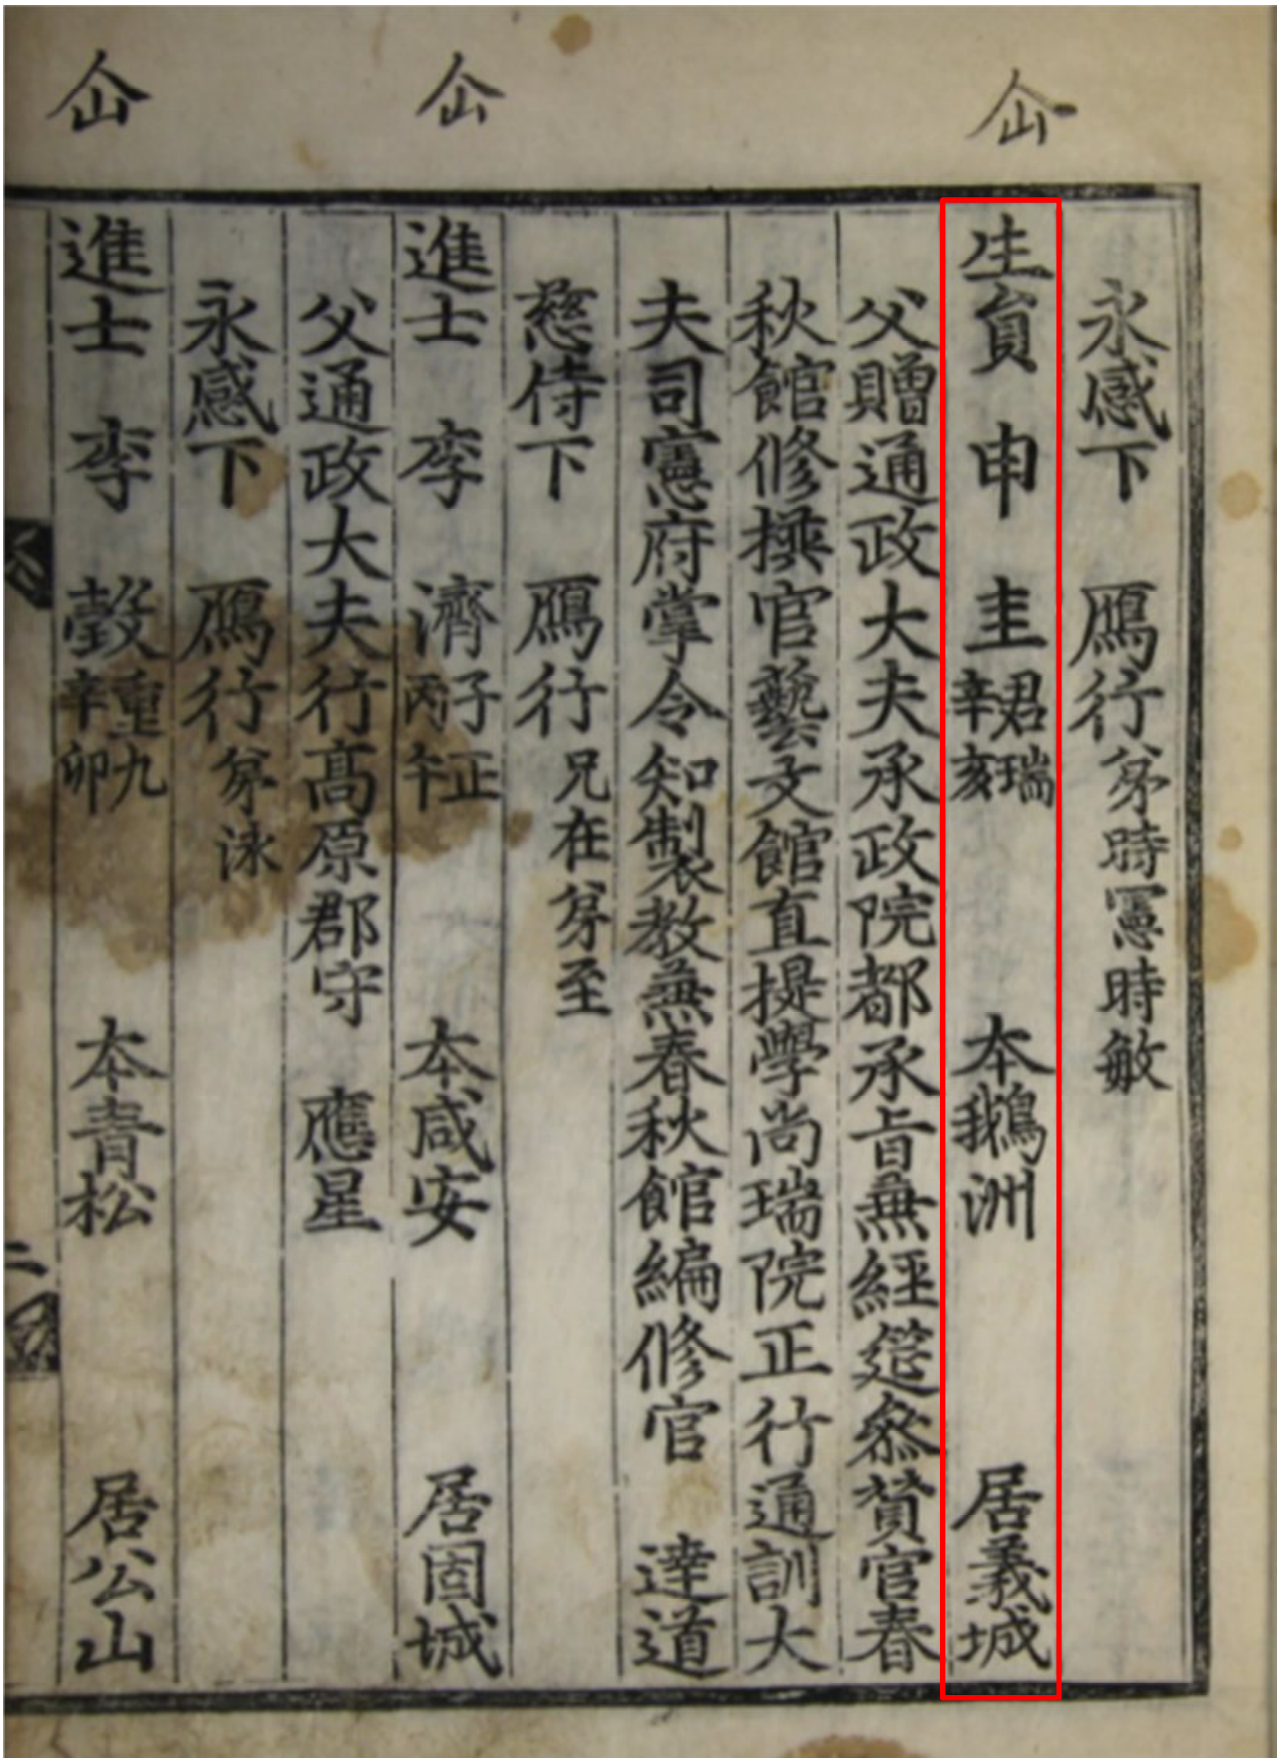 仚
仚
仚
永感下 鴈行弟時憲時敏
生員 申 圭君瑞辛亥 本鵝洲 居義城
父贈通政大夫承政院都承旨兼經筵叅贊官春
秋館修撰官藝文館直提學尚瑞院正行通訓大
夫司憲府掌令知製教兼春秋館編修官 達道
慈侍下 鴈行兄在弟至
進士 李 濟子正丙午 本咸安 居固城
父通政大夫行高原郡守 應星
永感下 鴈行弟泳
進士 李 㲄重九辛卯 本青松 居公山
二